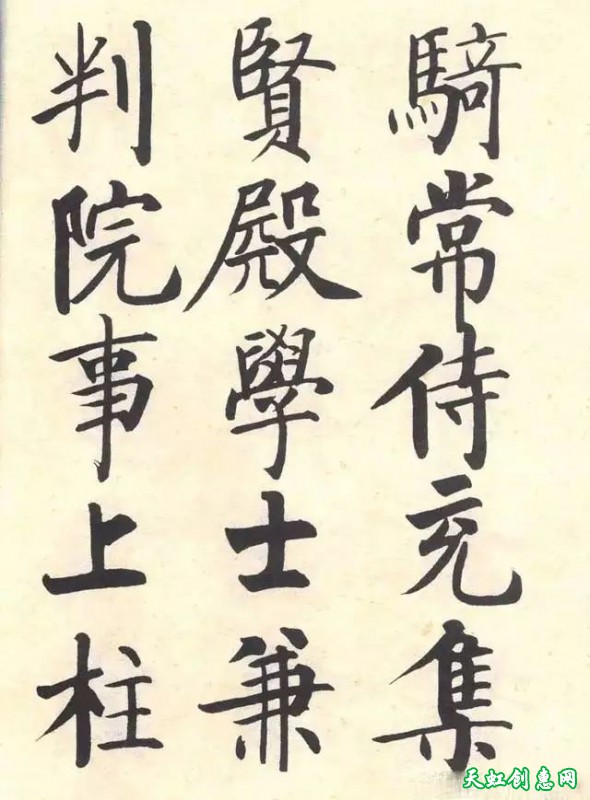 騎常侍充集
賢殿學士兼
判院事上柱
天虹创惠网